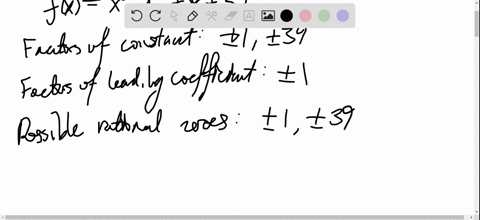 f(x) = x
Factors of constant: ±1, ±39
Factors of leading coefficient: ±1
Possible rational zeroes: ±1, ±39